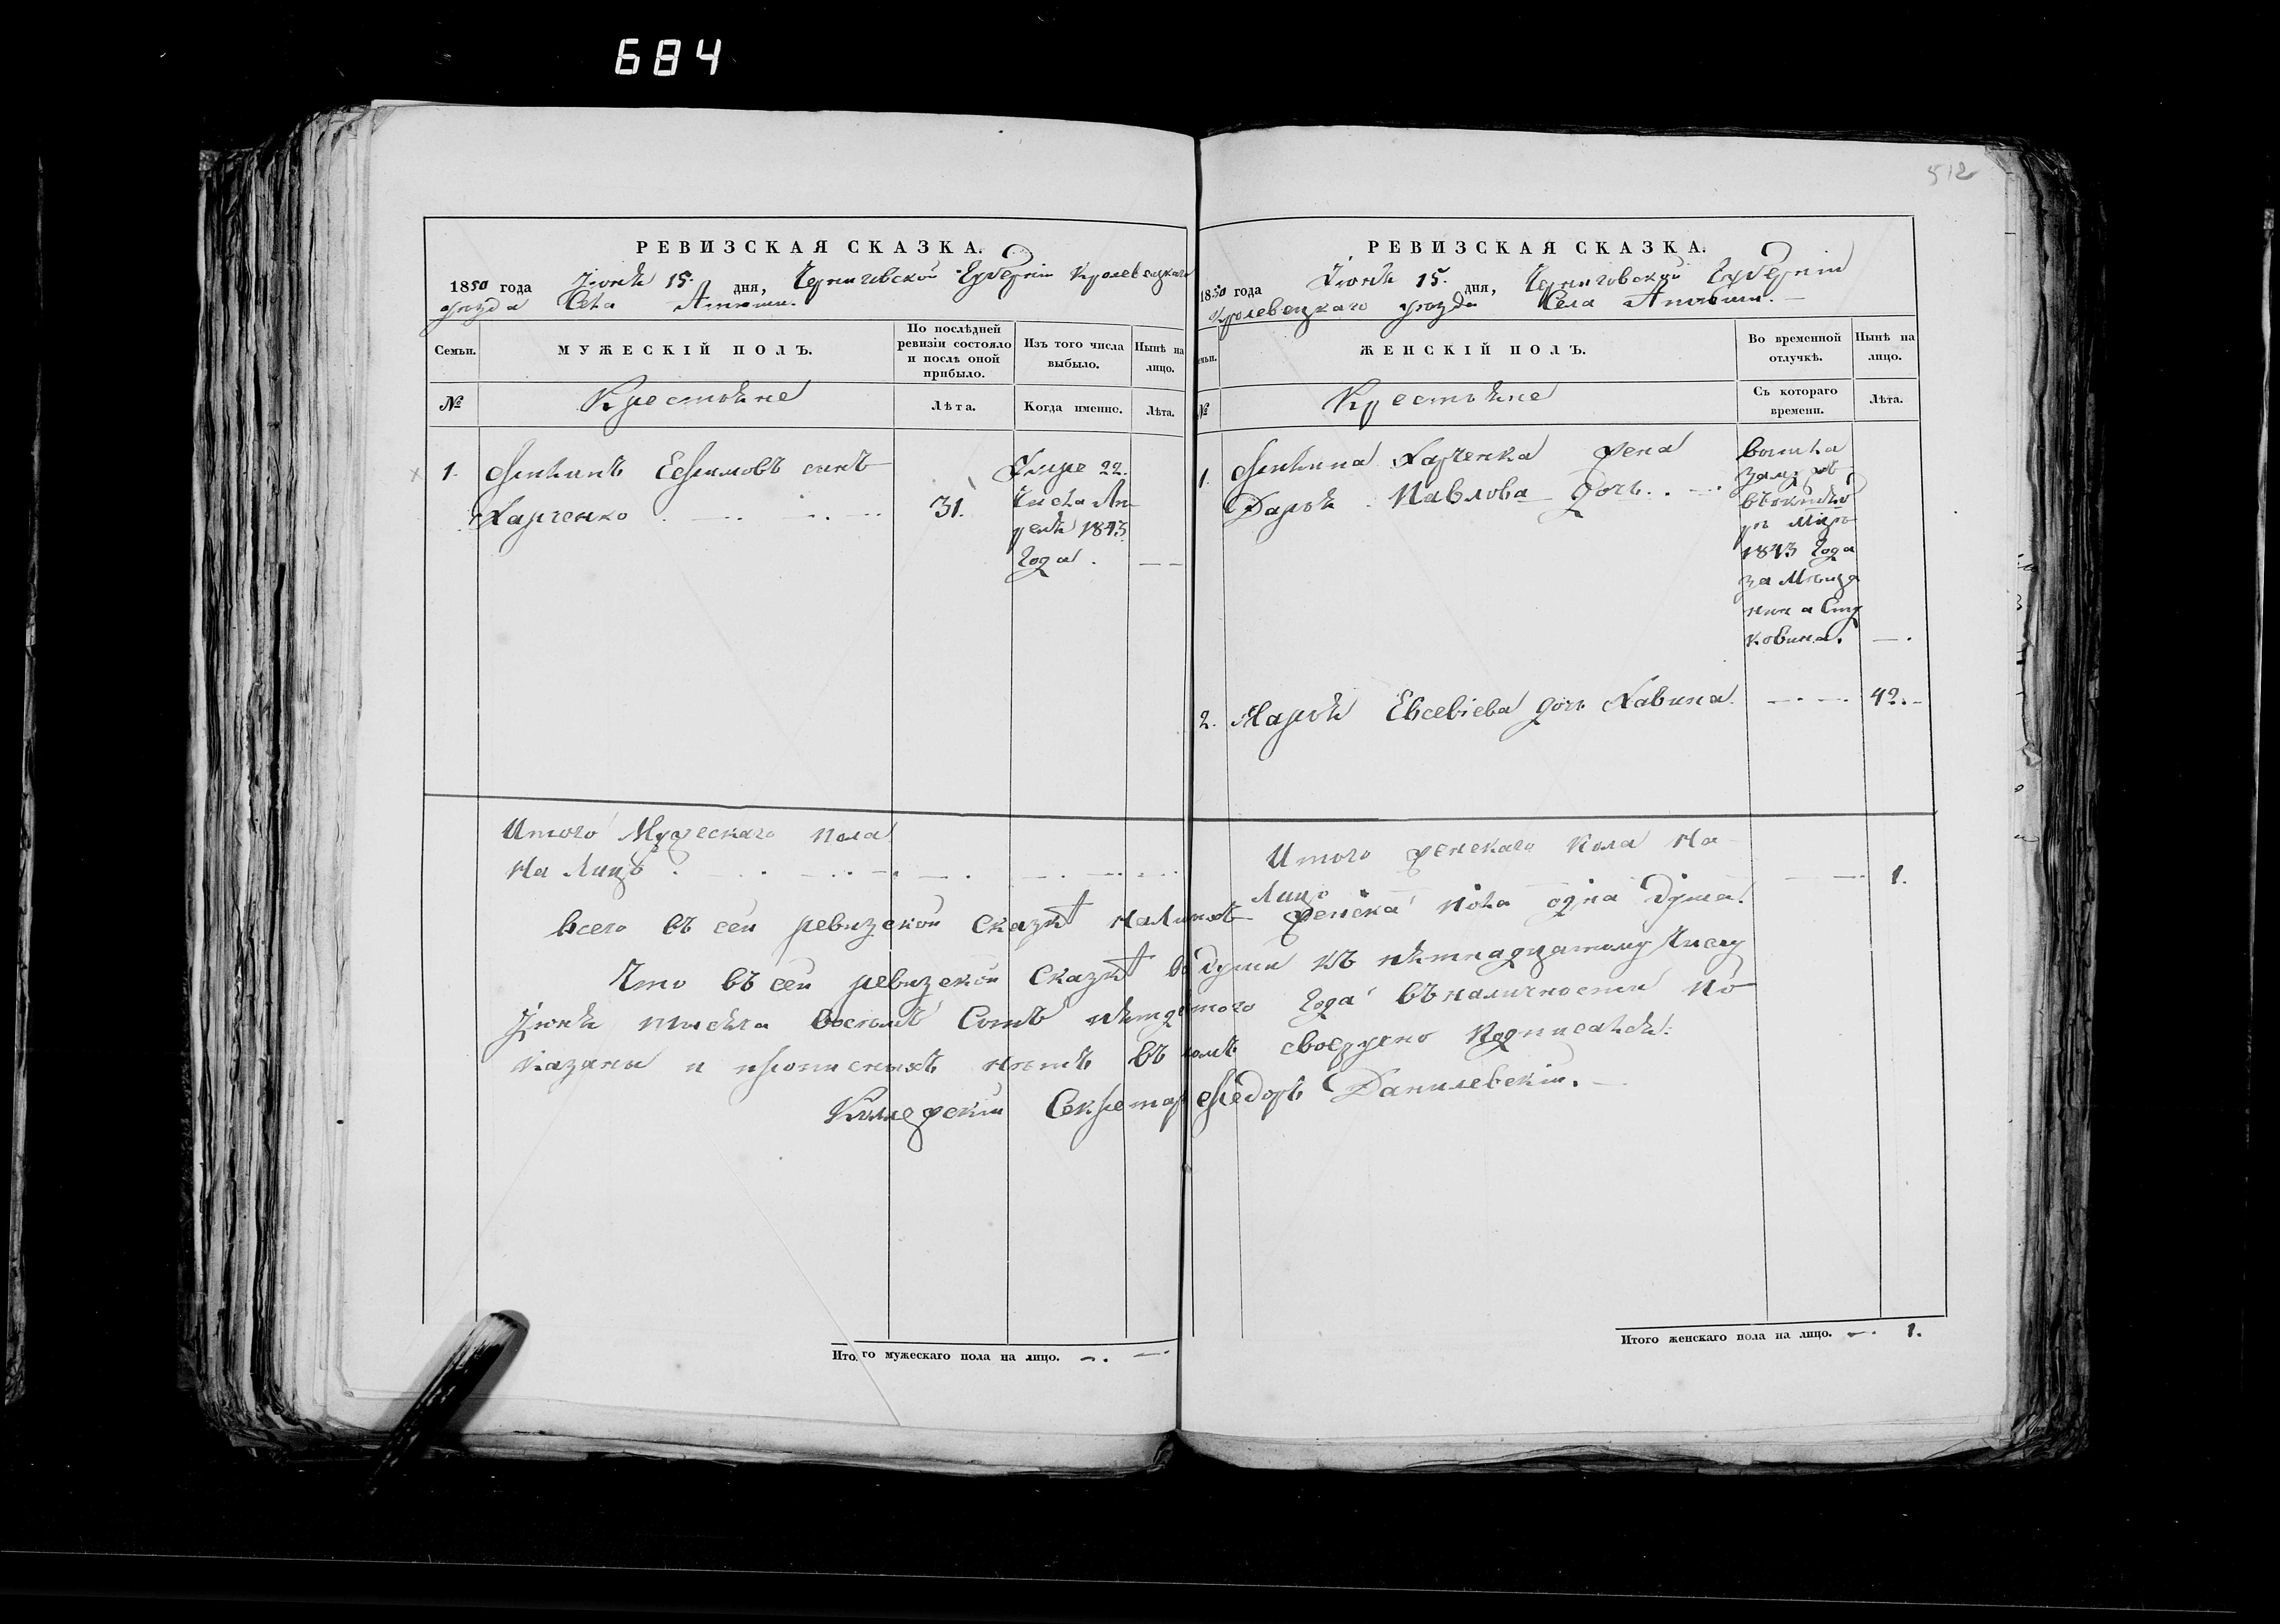 684
512
РЕВИЗСКАЯ СКАЗКА.
1850 года Іюня 15. дня, Черниговской Губерніи Кролевецкаго
уѣзда Села Атюши.
Семьи.
МУЖЕСКІЙ ПОЛЪ.
По послѣдней ревизіи состояло и послѣ оной прибыло.
Изъ того числа выбыло.
Нынѣ на лицо.
№
Крестьяне
Лѣта.
Когда именно.
Лѣта.
1. Ефимовъ сынъ
Харченко
31.
Умре 22.
Числа Ап
реля 1843
Года.
Итого Мужескаго пола
на Лицо
Итого мужескаго пола на лицо.
РЕВИЗСКАЯ СКАЗКА.
1850 года Іюня 15. дня, Черниговской Губерніи
Кролевецкаго уѣзда Села Атюши.
ЖЕНСКІЙ ПОЛЪ.
Во временной отлучкѣ.
Нынѣ на лицо.
№
Крестьяне
Съ котораго времени.
Лѣта.
1. Харченка жена
Дарья Павлова дочь.
вышла
замужъ
1843 Года
за Мѣща
нина
2. Марья Евсевіева дочь Хавина
42.
Итого женскаго пола на
Лицо
1.
Всего въ сей ревизской сказкѣ женска пола одна душа.
Что въ сей ревизской сказкѣ души къ пятнадцатому числу
Іюня тысяча восемь сотъ пятдесятого Года въ наличности по
казаны и прописныхъ нѣтъ въ томъ своеручно подписался:
Колежскій Секретарь Федоръ Данилевскій.
Итого женскаго пола на лицо. 1.